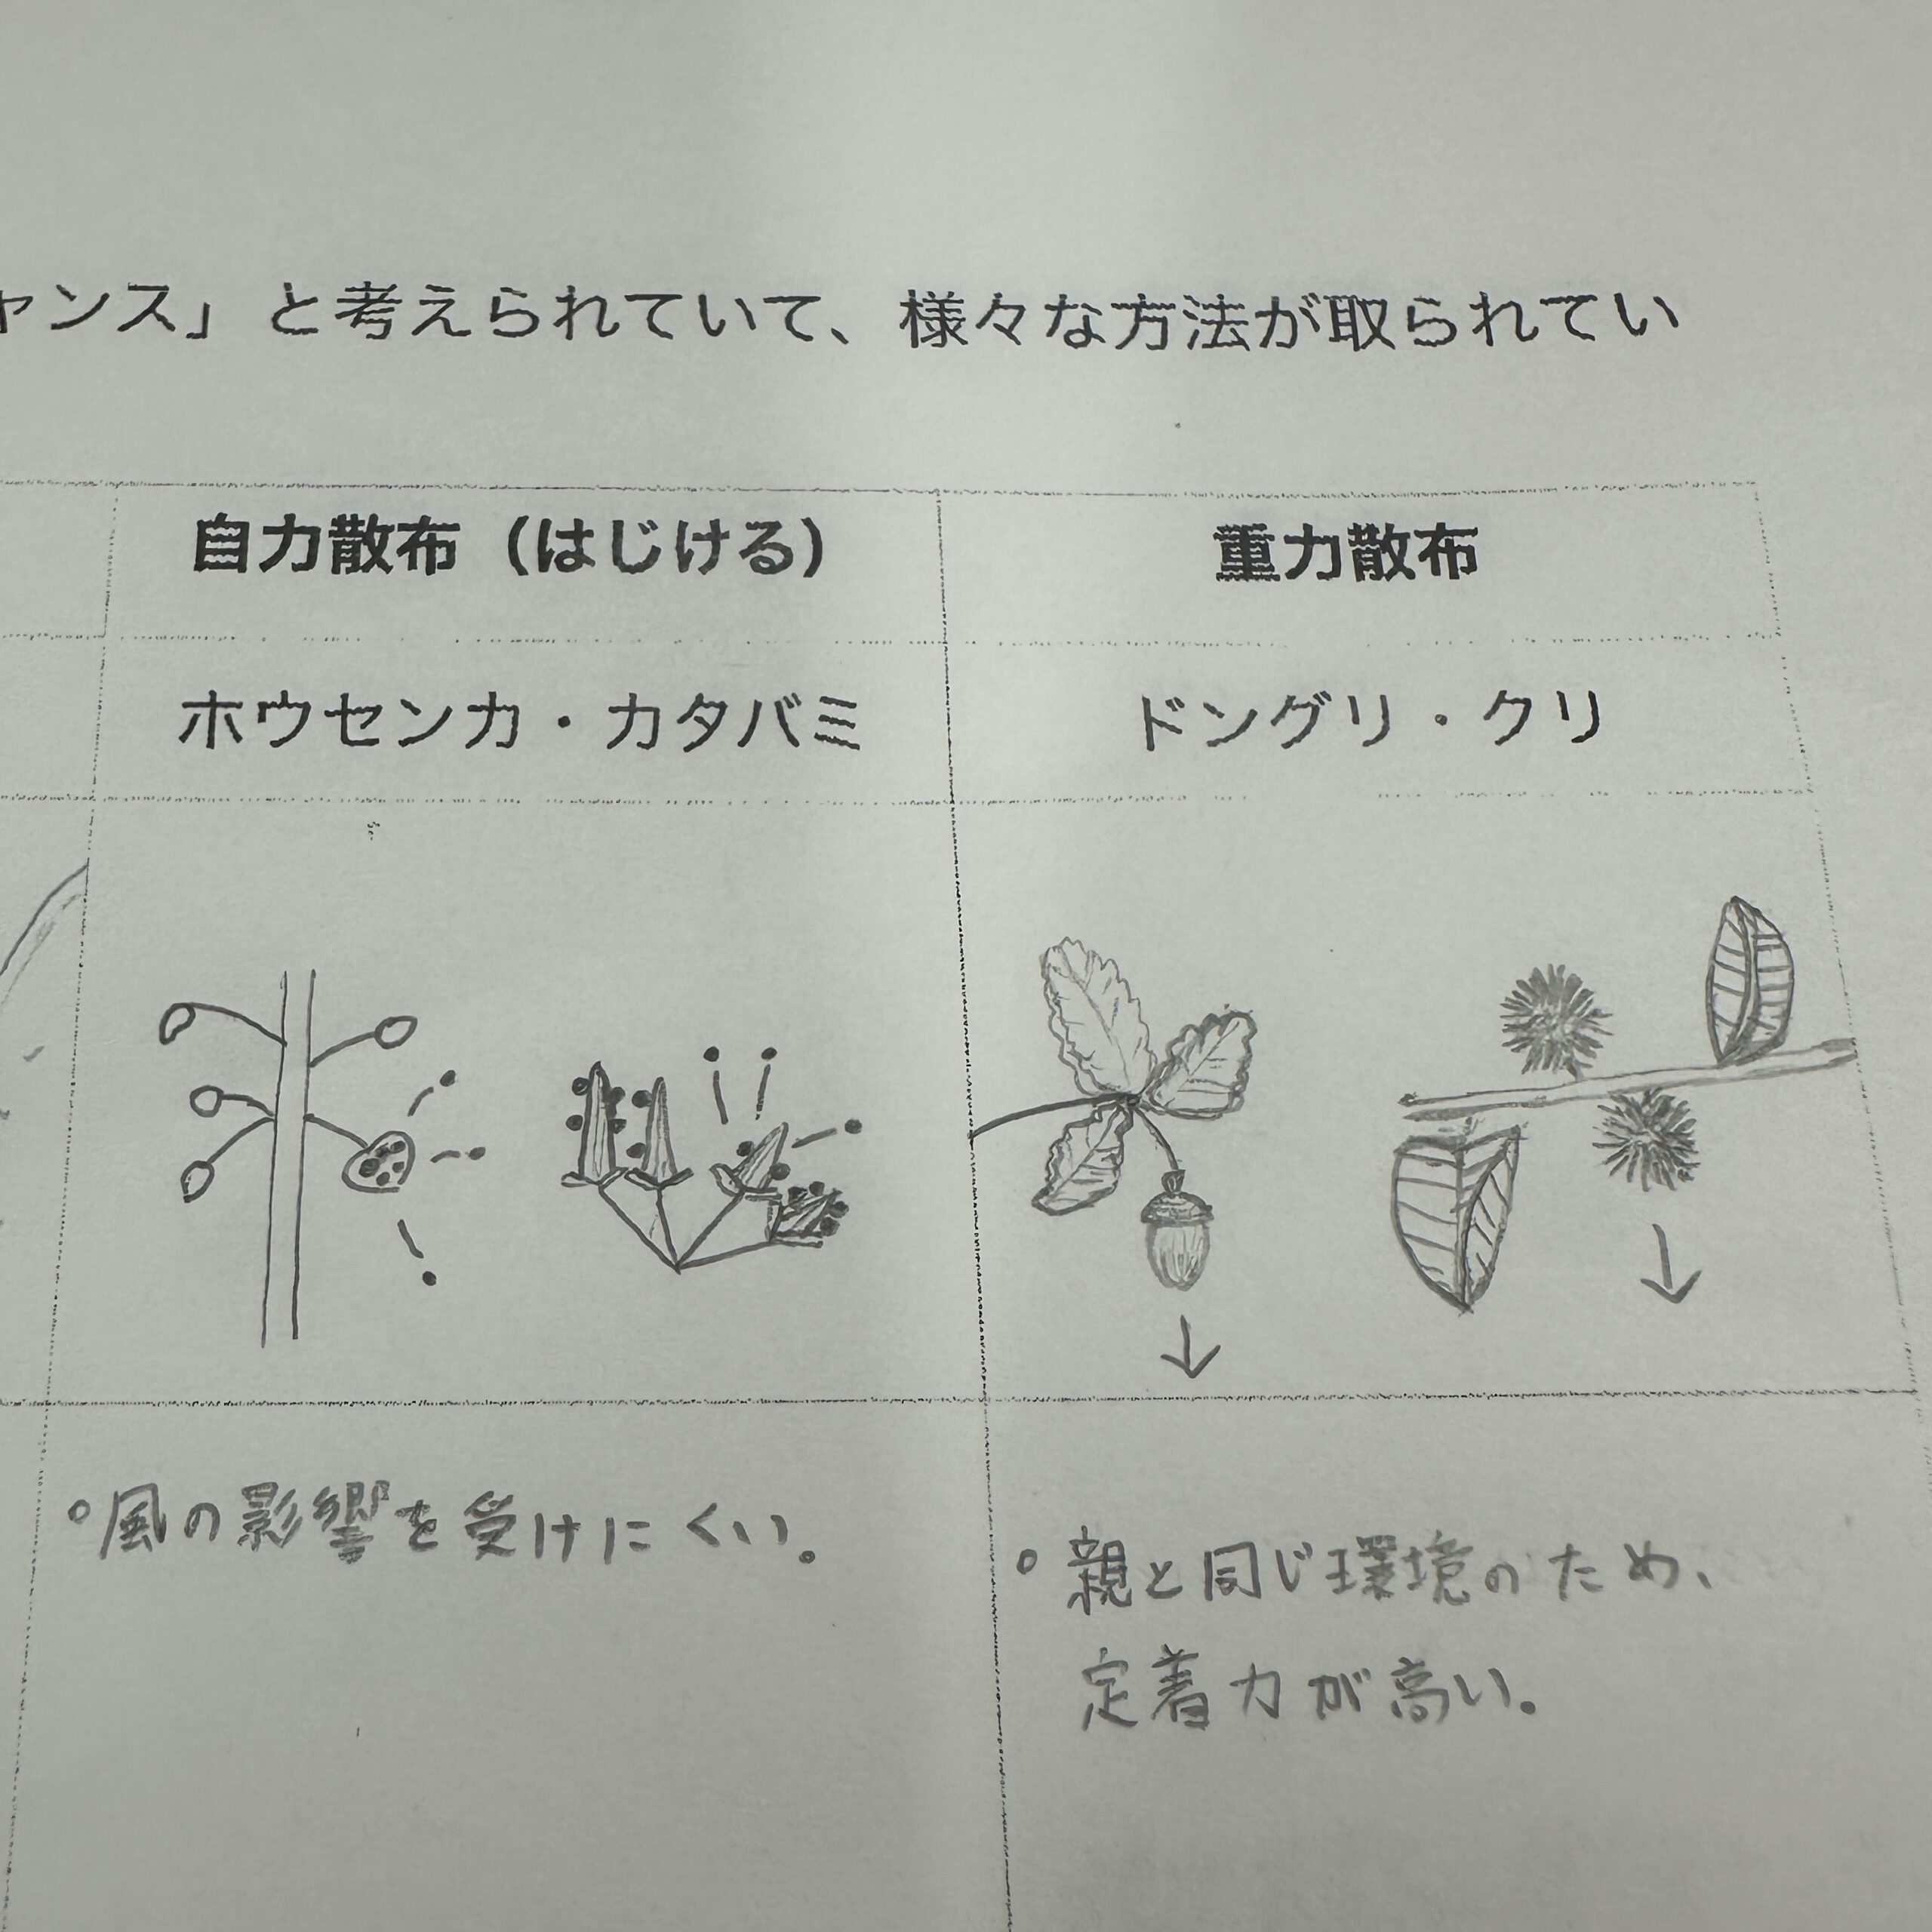 ャンス」と考えられていて、様々な方法が取られてい
自力散布（はじける）
重力散布
ホウセンカ・カタバミ
ドングリ・クリ
○風の影響を受けにくい。
○親と同じ環境のため、
定着力が高い。